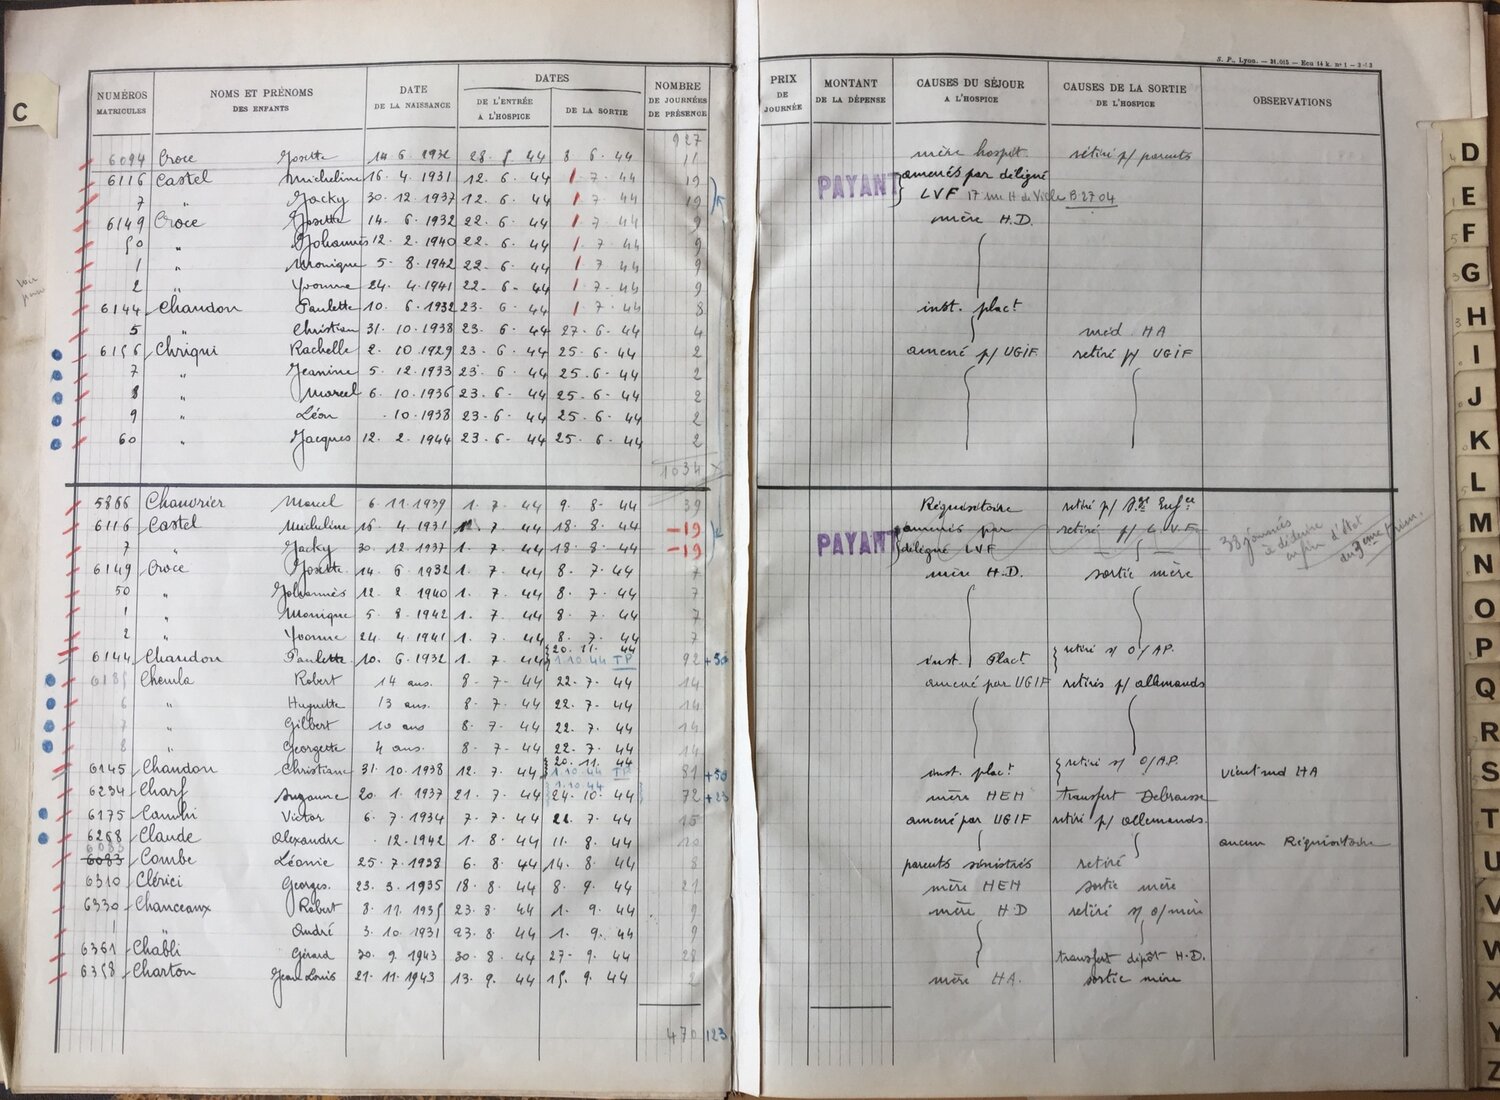 S. P., Lyon. — 31.015 — Ecu 14 k. n° 1 - 3-43
C
NUMÉROS MATRICULES | NOMS ET PRÉNOMS DES ENFANTS | DATE DE LA NAISSANCE | DATES DE L'ENTRÉE A L'HOSPICE | DE LA SORTIE | NOMBRE DE JOURNÉES DE PRÉSENCE | PRIX DE JOURNÉE | MONTANT DE LA DÉPENSE | CAUSES DU SÉJOUR A L'HOSPICE | CAUSES DE LA SORTIE DE L'HOSPICE | OBSERVATIONS
927
6094 Croce Josette 14 6 1932 28 5 44 8 6 44 11 mère hospit. retiré p/ parents
6116 Castel Micheline 16. 4. 1931 12. 6. 44 1 7 44 19 PAYANT amenés par délégué
7 " Jacky 30. 12. 1937 12. 6. 44 1 7 44 19 LVF 17 rue H de Ville B 27 04
6149 Croce Josette 14. 6. 1932 22. 6. 44 1 7 44 9 mère H.D.
50 " Johannès 12. 2. 1940 22. 6. 44 1 7 44 9
1 " Monique 5. 8. 1942 22. 6. 44 1 7 44 9
2 " Yvonne 24. 4. 1941 22. 6. 44 1 7 44 9
6144 Chandon Paulette 10. 6. 1932 23. 6. 44 1 7 44 8 inst. plact
5 " Christian 31. 10. 1938 23. 6. 44 27. 6. 44 4 méd HA
6156 Chriqui Rachelle 2. 10. 1929 23. 6. 44 25. 6. 44 2 amené p/ UGIF retiré p/ UGIF
7 " Jeanine 5. 12. 1933 23. 6. 44 25. 6. 44 2
8 " Marcel 6. 10. 1936 23. 6. 44 25. 6. 44 2
9 " Léon . 10. 1938 23. 6. 44 25. 6. 44 2
60 " Jacques 12. 2. 1944 23. 6. 44 25. 6. 44 2
1034
5866 Chauvrier Marcel 6. 11. 1939 1. 7. 44 9. 8. 44 39 Réquisitoire retiré p/
6116 Castel Micheline 16. 4. 1931 1. 7. 44 18. 8. 44 -19 PAYANT amenés par retiré p/ L.V.F.
7 " Jacky 30. 12. 1937 1. 7. 44 18. 8. 44 -19 délégué LVF
38 journées à déduire en fin d'état du 3ème trim.
6149 Croce Josette 14. 6. 1932 1. 7. 44 8. 7. 44 7 mère H.D. sortie mère
50 " Johannès 12. 2. 1940 1. 7. 44 8. 7. 44 7
1 " Monique 5. 8. 1942 1. 7. 44 8. 7. 44 7
2 " Yvonne 24. 4. 1941 1. 7. 44 8. 7. 44 7
20. 11. 44
6144 Chandon Paulette 10. 6. 1932 1. 7. 44 1.10 44 TP 92 +50 inst. Plact retiré s/ O/AP.
6185 Chemla Robert 14 ans. 8. 7. 44 22. 7. 44 14 amené par UGIF retirés p/ allemands
6 " Huguette 13 ans. 8. 7. 44 22. 7. 44 14
7 " Gilbert 10 ans 8. 7. 44 22. 7. 44 14
8 " Georgette 4 ans. 8. 7. 44 22. 7. 44 14
20. 11. 44
6145 Chandon Christiane 31. 10. 1938 12. 7. 44 1.10 44 TP 81 +50 inst. plact retiré s/ O/AP. vient méd HA
1.10 44
6234 Charf Suzanne 20. 1. 1937 21. 7. 44 24. 10. 44 72 +23 mère HEH transfert Debrousse
6175 Camhi Victor 6. 7. 1934 7. 7. 44 22. 7. 44 15 amené par UGIF retiré p/ allemands.
6268 Claude Alexandre . 12. 1942 1. 8. 44 11. 8. 44 10 aucun Réquisitoire
6083 Combe Léonie 25. 7. 1938 6. 8. 44 14. 8. 44 8 parents sinistrés retiré
6310 Clérici Georges. 23. 3. 1935 18. 8. 44 8. 9. 44 21 mère HEH sortie mère
6330 Chanceaux Robert 8. 11. 1935 23. 8. 44 1. 9. 44 9 mère H.D retiré s/ o/ mère
1 " André 3. 10. 1931 23. 8. 44 1. 9. 44 9
6361 Chabli Gérard 30. 9. 1943 30. 8. 44 27. 9. 44 28 transfert dépôt H.D.
6358 Charton Jean Louis 21. 11. 1943 13. 9. 44 15. 9. 44 2 mère HA. sortie mère
470 123
D
E
F
G
H
I
J
K
L
M
N
O
P
Q
R
S
T
U
V
W
X
Y
Z